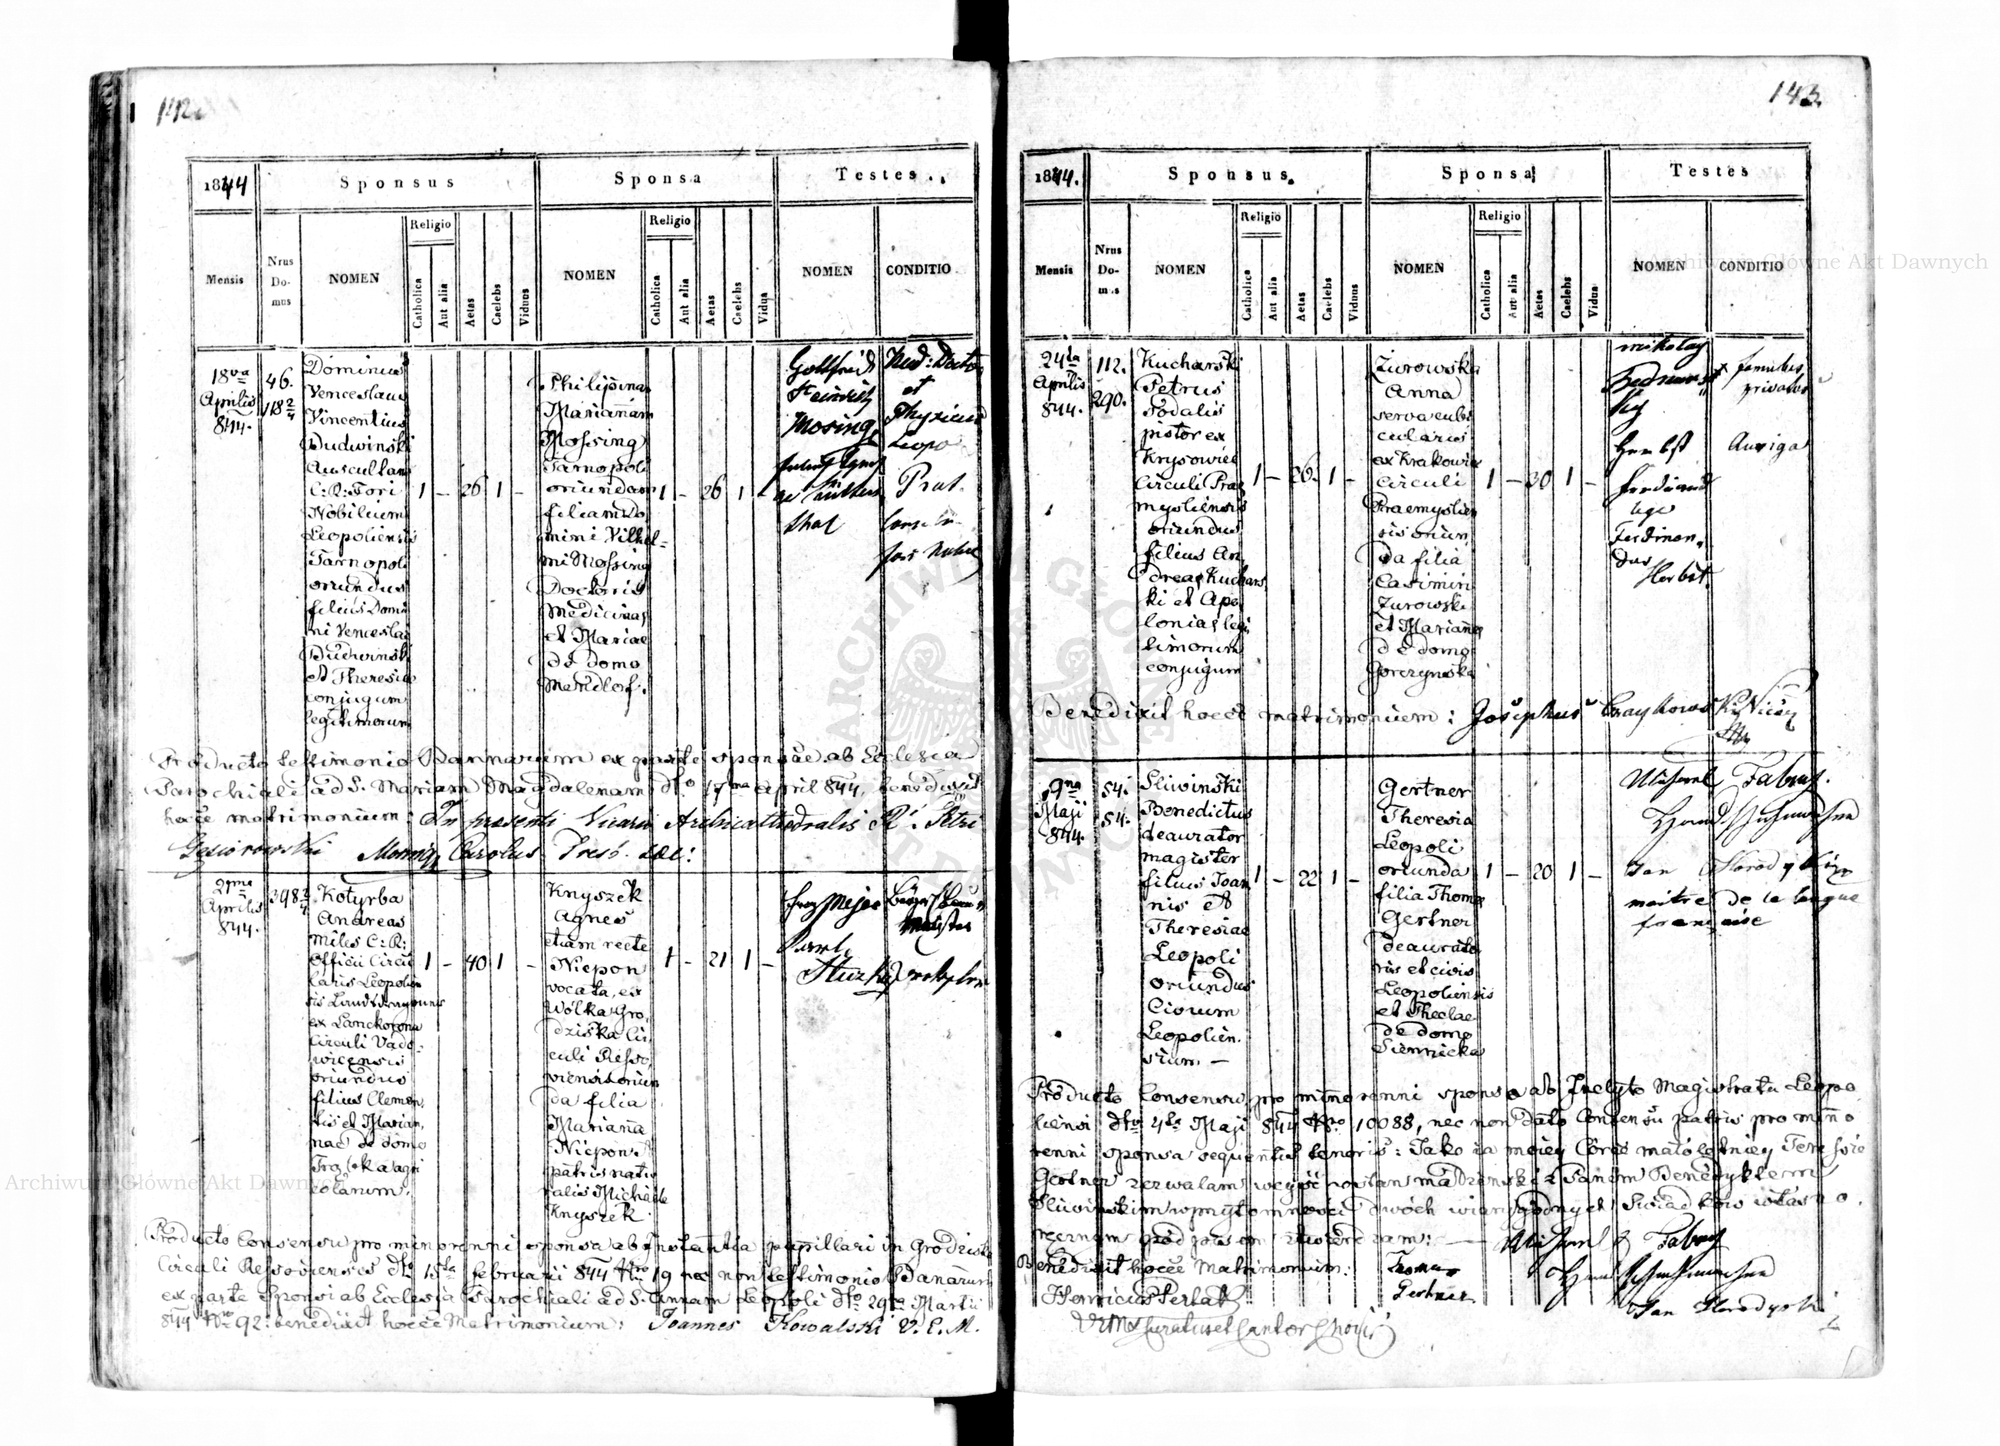 142.
1844
Sponsus
Sponsa
Testes
Mensis
Nrus Domus
NOMEN
Religio
Catholica
Aut alia
Aetas
Caelebs
Viduus
NOMEN
Religio
Catholica
Aut alia
Aetas
Caelebs
Vidua
NOMEN
CONDITIO
18va
Aprilis
844.
46.
118 2/4
Dominus
Venceslaus
Vincentius
Dudwinski
Auscultans
C: R: Fori
Nobilium
Leopoliensis
Tarnopoli
oriundus
filius Domi
ni Venceslai
Dudwinski
et Theresiae
conjugum
legitimorum
1 – 26 1 –
Philipinam
Mariannam
Mossing
Tarnopoli
oriundam
filiam Do
mini Vilhel=
mi Mossing
Doctoris
Medicinae
et Mariae
de domo
Mendlof.
1 – 26 1 –
Gottfried
Heinrich
Mosing
Med: Doctor
et
Physicus
Leopo
Producto testimonio Bannorum ex parte sponsae ab Ecclesia
Parochiali ad S. Mariam Magdalenam dto 17ma April 844, benedixit
hocce matrimonium: In presenti Vicarii Archicathedralis R. Petri
Gesiorowski Mosing Carolus Presb. saec:
21ma
Aprilis
844.
398 3/4
Kotyrba
Andreas
miles C: R:
officii Circu
laris Leopolien
sis Landsdragoner
ex Lanckorona
Circuli Vado=
wicensis
oriundus
filius Clemen
tis et Marian
nae de domo
agri
colarum.
1 – 40 1 –
Knyszek
Agnes
etiam recte
Niepon
vocata, ex
Wolka Gro,
dziska Cir
culi Resso,
viensis oriun
da filia
Marianna
Niepon
patris natu
ralis Michaele
Knyszek.
1 – 21 1 –
Producto Consensu pro minorenni sponsa ab Instantia pupillari in Grodzisko
Circuli Ressoviensis dto 15ta februarii 844 Nro 19 nec non testimonio Bannorum
ex parte sponsi ab Ecclesia Parochiali ad S. Annam Leopoli dto 29na Martii
844 Nro 92. benedixit hocce Matrimonium: Joannes Kowalski V. E. M.
143.
1844.
Sponsus
Sponsa
Testes
Mensis
Nrus Domus
NOMEN
Religio
Catholica
Aut alia
Aetas
Caelebs
Viduus
NOMEN
Religio
Catholica
Aut alia
Aetas
Caelebs
Vidua
NOMEN
CONDITIO
24ta
Aprilis
844.
112.
290.
Kucharski
Petrus
Sodalis
pistor ex
Krysowice
Circuli Prae
mysliensis
oriundus
filius An
dreae Kuchars
ki et Apo
loniae legi
timorum
conjugum
1 – 26 1 –
Zurowska
Anna
serva cubi
cularis
ex Krakowice
Circuli
Praemyslien
sis oriun
da filia
Casimiri
Zurowski
et Mariannae
de domo
Gorczynska
1 – 30 1 –
mikolay
famulus
privatus
Herbst
Ferdinand
lego
Ferdinan
dus
Herbst.
Auriga
Benedixit hocce matrimonium: Josephus Czaykowski Vicar
9na
Maji
844.
54.
54.
Sliwinski
Benedictus
deaurator
magister
filius Joan
nis et
Theresiae
Leopoli
oriundus
Civium
Leopolien.
sium. –
1 – 22 1 –
Gertner
Theresia
Leopoli
oriunda
filia Thomae
Gertner
deaurato
ris et civis
Leopoliensis
et Theclae
de domo
Siennicka
1 – 20 1 –
Jan Horodyski
maitre de la langue
française
Producto Consensu pro minorenni sponso ab Inclyto Magistratu Leopo
liensi dto 4ta Maji 844 Nro 10088, nec non dato Consensu patris pro mino
renni sponsa sequentis tenoris: Jako ia moiey Córce małoletniey Teressie
Gertner zezwalam weyść w stan małżenski z Panem Benedyktem
Sliwinskim w przytomności dwóch wiarygodnych Świadków własno
ręcznym podpisem stwierdzam:
Benedixit hocce Matrimonium: Tomasz
Gertner
Henricus
Jan Horodyski
Archiwum Główne Akt Dawnych
Archiwum Główne Akt Dawnych
ARCHIWUM GŁÓWNE AKT DAWNYCH